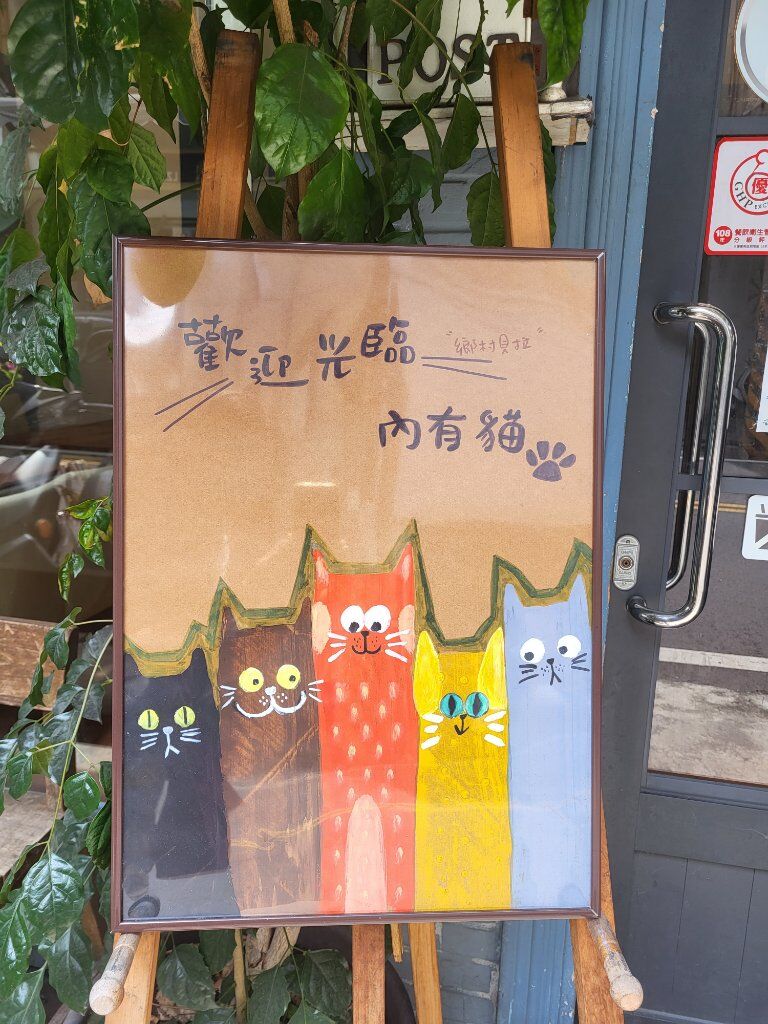 POST
歡迎光臨 "鄉村貝拉"
內有貓
優
GHP
108年 餐飲衛生管
分級評